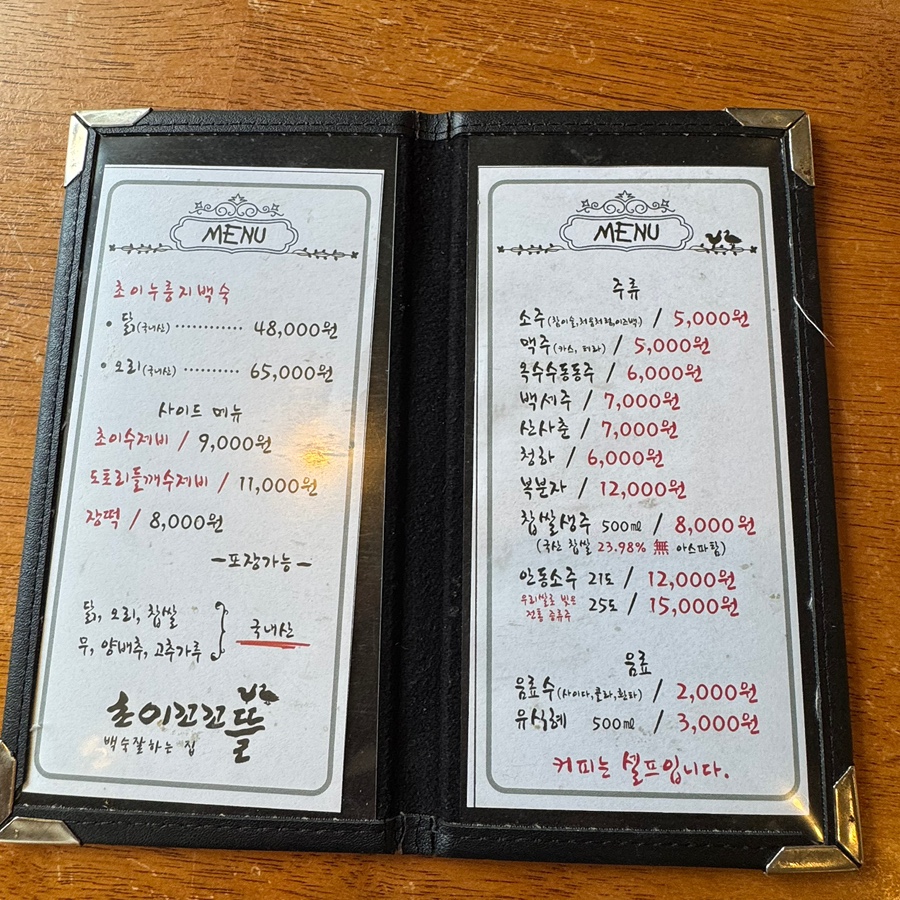 MENU
초이누룽지백숙
• 닭(국내산) ············ 48,000원
• 오리(국내산) ·········· 65,000원
사이드 메뉴
초이수제비 / 9,000원
도토리들깨수제비 / 11,000원
장떡 / 8,000원
-포장가능-
닭, 오리, 찹쌀
무, 양배추, 고추가루
국내산
초이꼬꼬뜰
백숙잘하는 집
MENU
주류
소주(참이슬,처음처럼,이즈백) / 5,000원
맥주(카스, 테라) / 5,000원
옥수수동동주 / 6,000원
백세주 / 7,000원
산사춘 / 7,000원
청하 / 6,000원
복분자 / 12,000원
찹쌀생주 500㎖ / 8,000원
(국산 찹쌀 23.98% 無 아스파탐)
안동소주 21도 / 12,000원
우리쌀로 빚은
전통 증류주
25도 / 15,000원
음료
음료수(사이다,콜라,환타) / 2,000원
유식혜 500㎖ / 3,000원
커피는 셀프입니다.